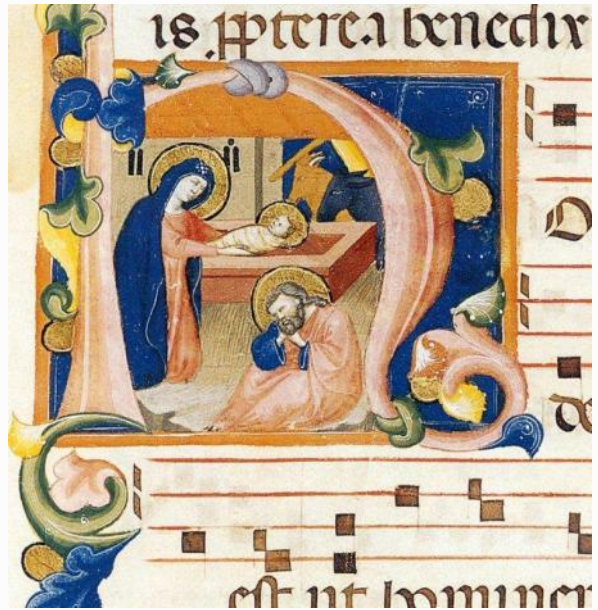 is. ꝓpterea benedix
H
O
de
est ut homine